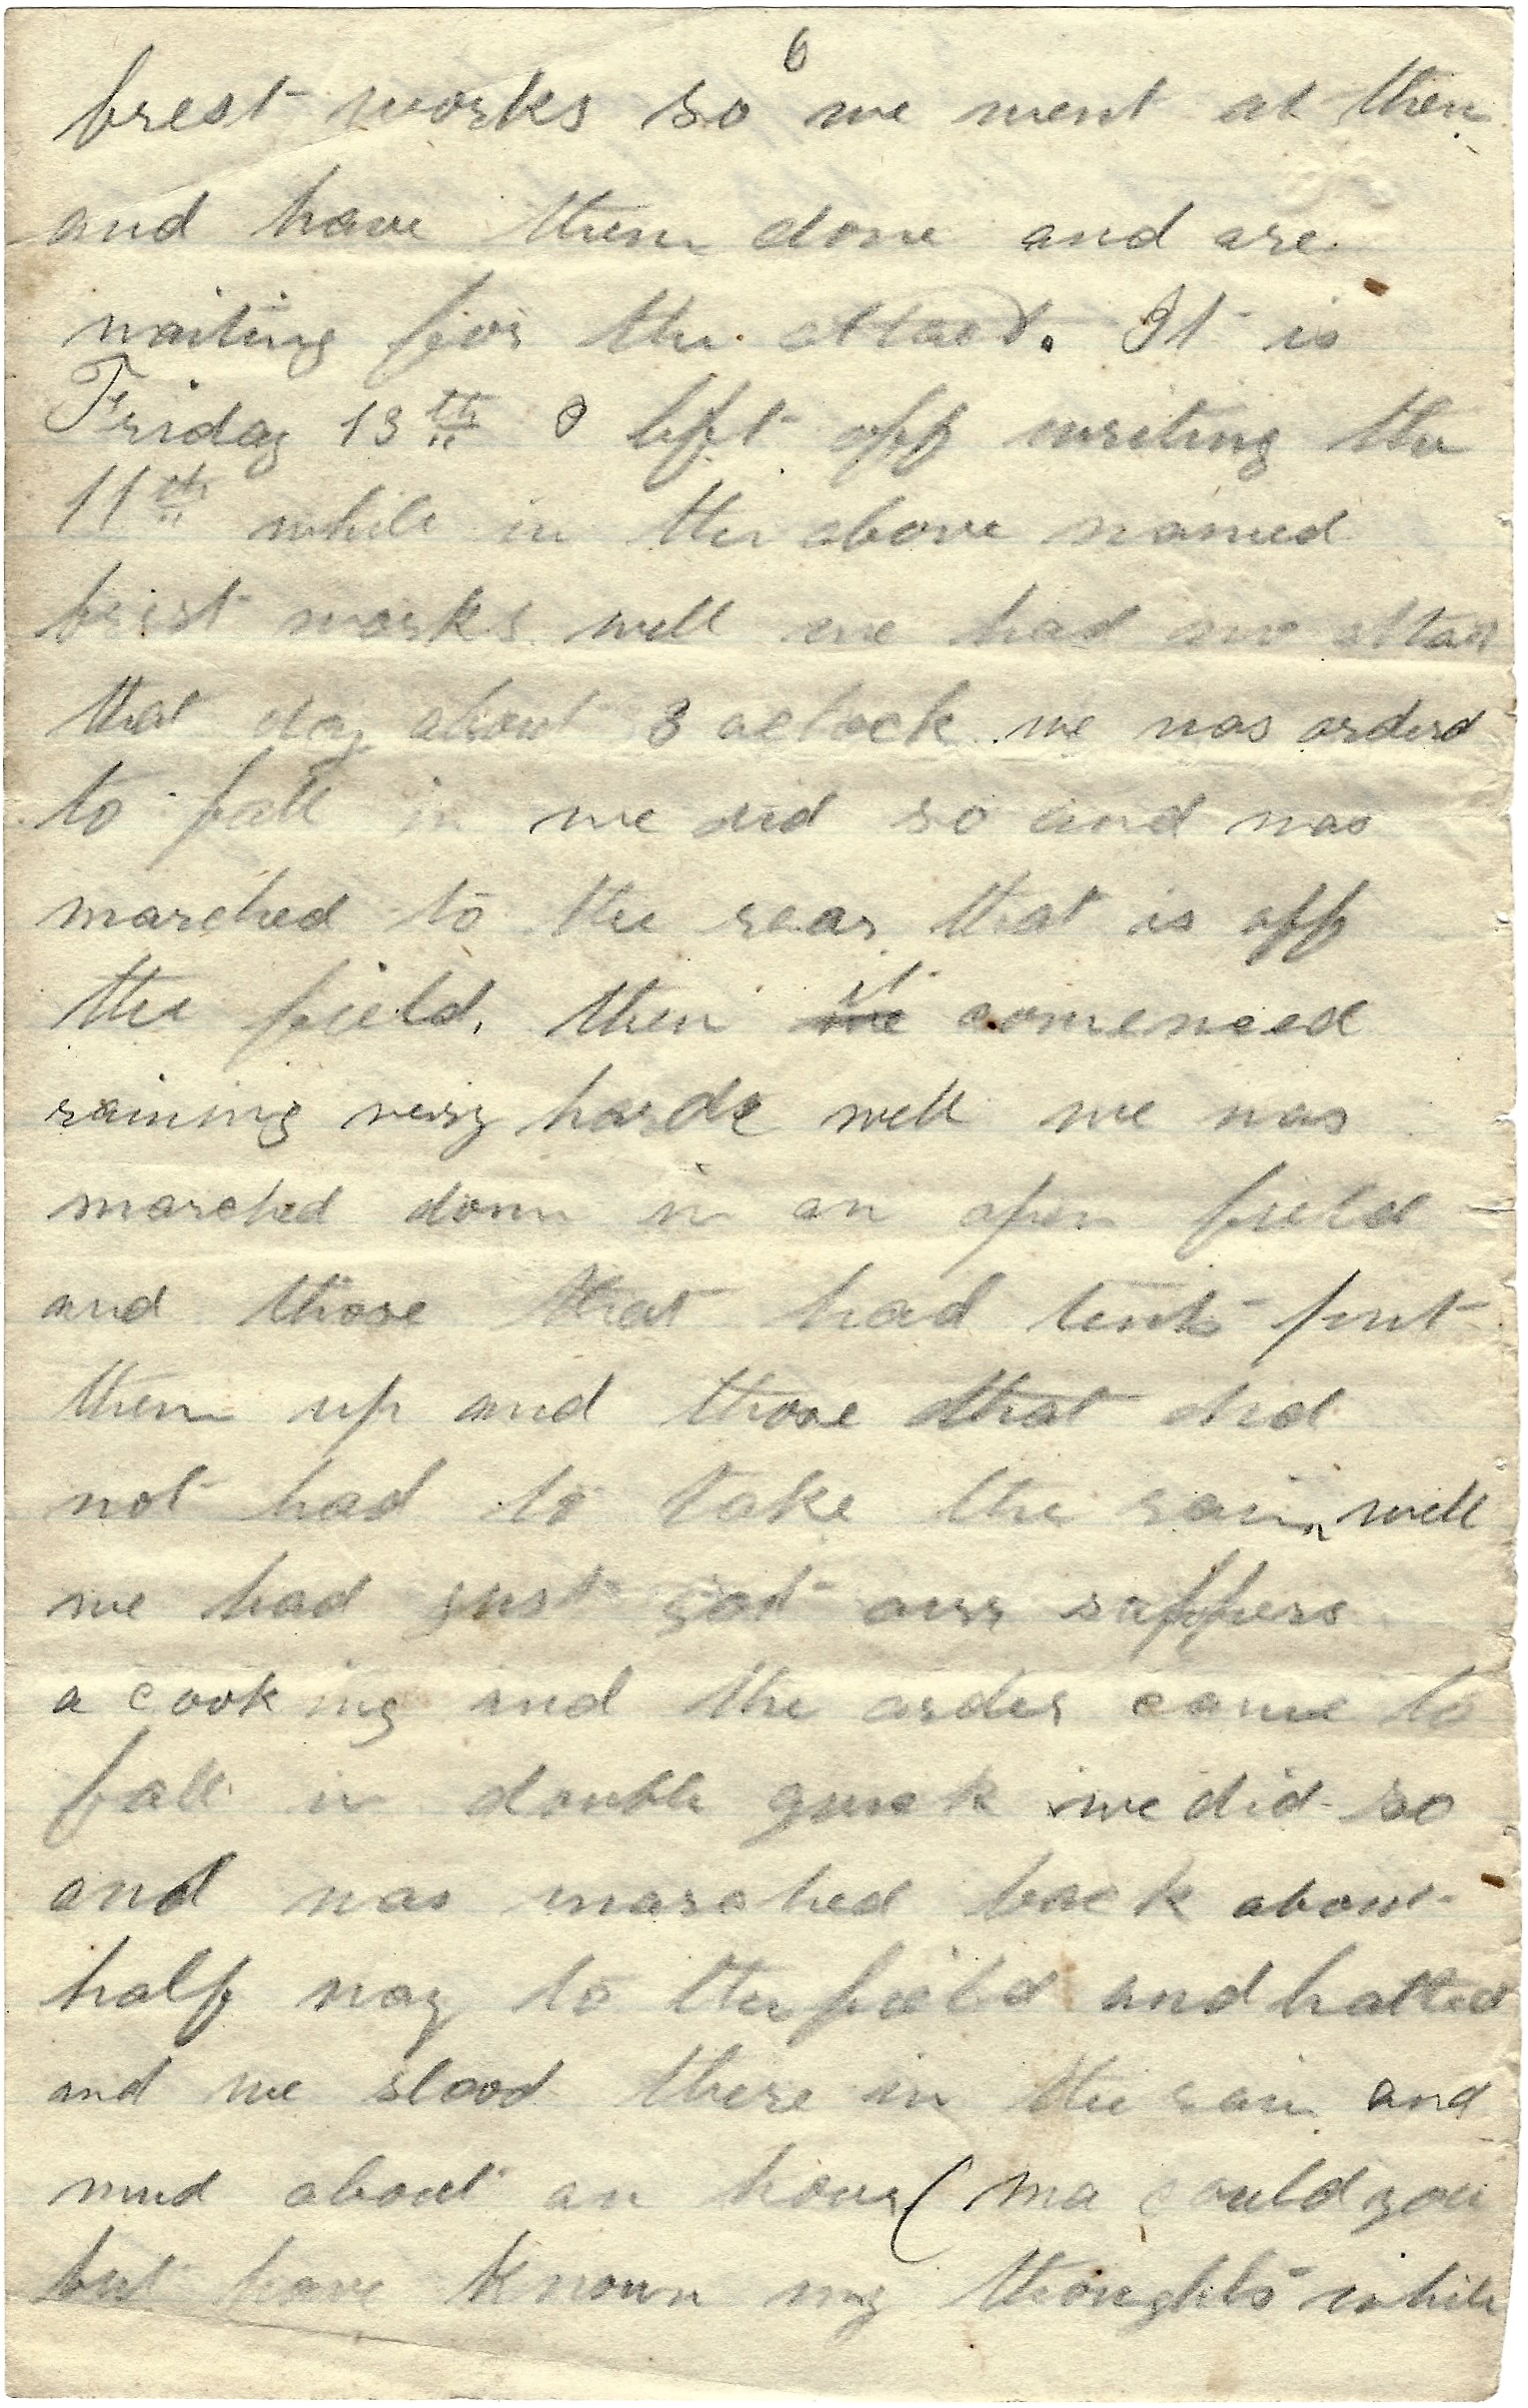 6
brest works so we went at them
and have them done and are
waiting for the attact. It is
Friday 13th I left off writing the
11th while in the above named
brest works well we had no attact
that day about 3 oclock we was orderd
to fall in we did so and was
marched to the rear that is off
the field. then we it comenced
raining very harde well we was
marched down in an open field
and those that had tents put
them up and those that did
not had to take the rain, well
we had just got ourr suppers
a cooking and the order came to
fall in double quick we did so
and was marched back about
half way to the field and halted
and we stood there in the rain and
mud about an hour (ma could you
but have known my thoughts while